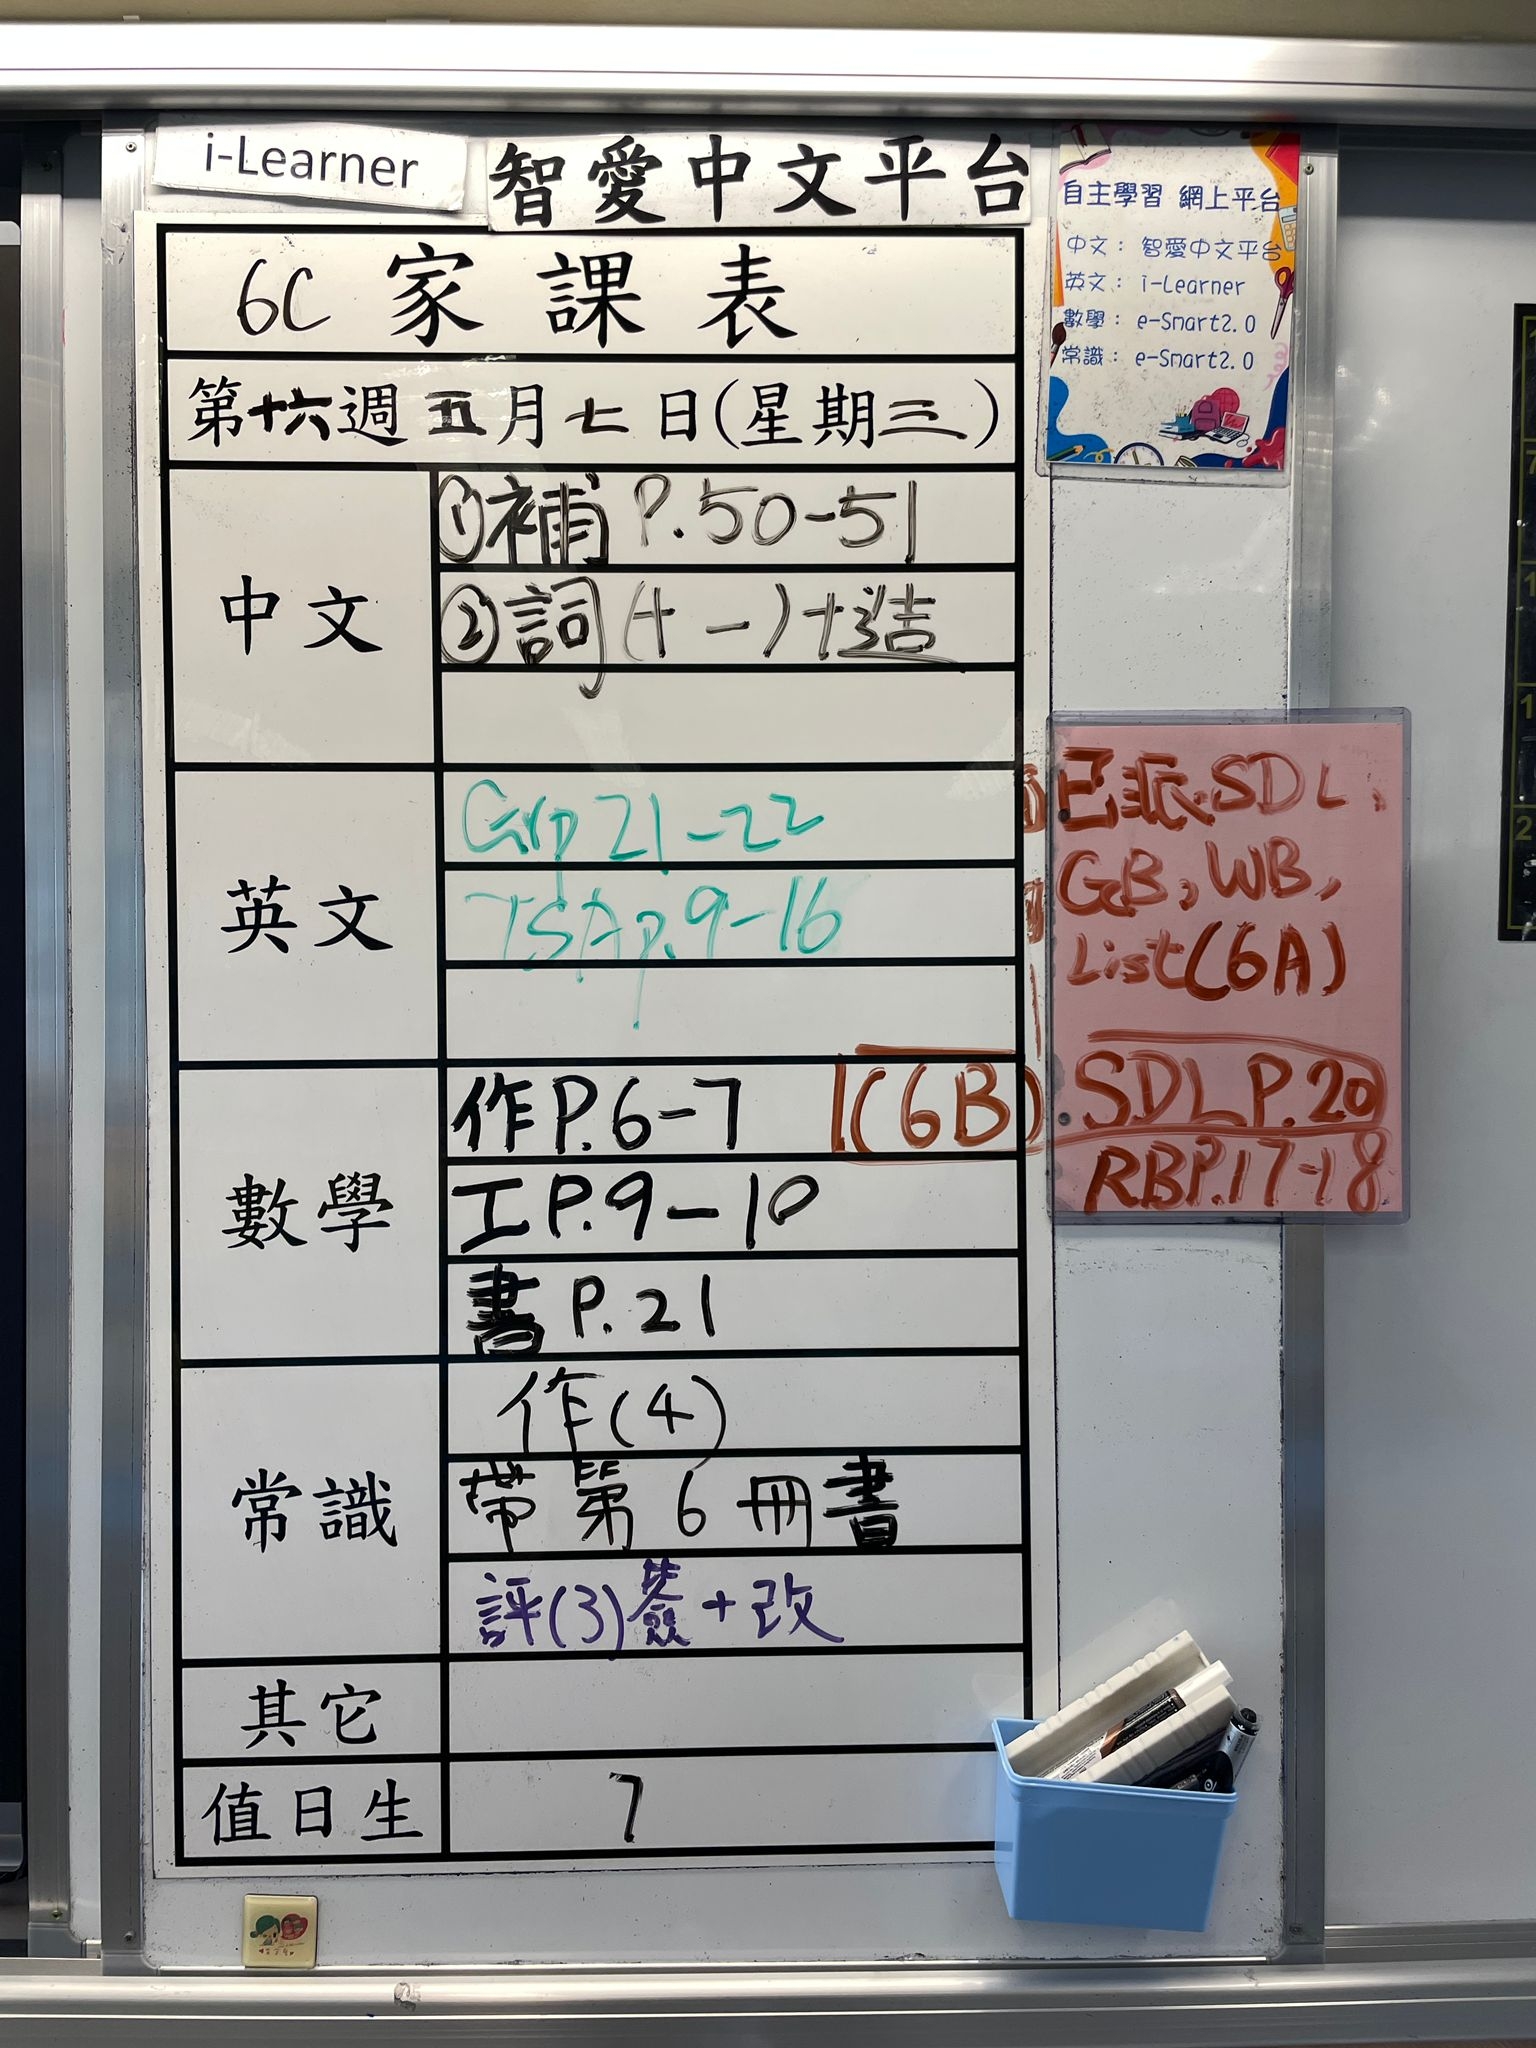 i-Learner
智愛中文平台
6C 家課表
第十六週五月七日(星期三)
中文
①補 P.50-51
②詞(十一)+造
英文
Grp 21-22
TSA p.9-16
數學
作P.6-7
工P.9-10
書P.21
常識
作(4)
帶第6冊書
評(3)簽+改
其它
值日生
7
自主學習 網上平台
中文：智愛中文平台
英文：i-Learner
數學：e-Smart2.0
常識：e-Smart2.0
已派SDL,
GB, WB,
List(6A)
(6B) SDL P.20
RBP.17-18